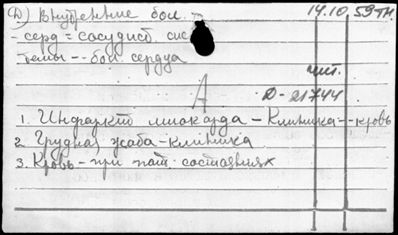 Д) Внутренние бол.
14.10.59 тм.
- серд = сосудист сис
темы -- бол. сердца
чит.
А
Д-21744
1. Инфаркт миокарда - Клиника -- кровь
2. Грудная жаба - клиника
3. Кровь - при пат. состояниях